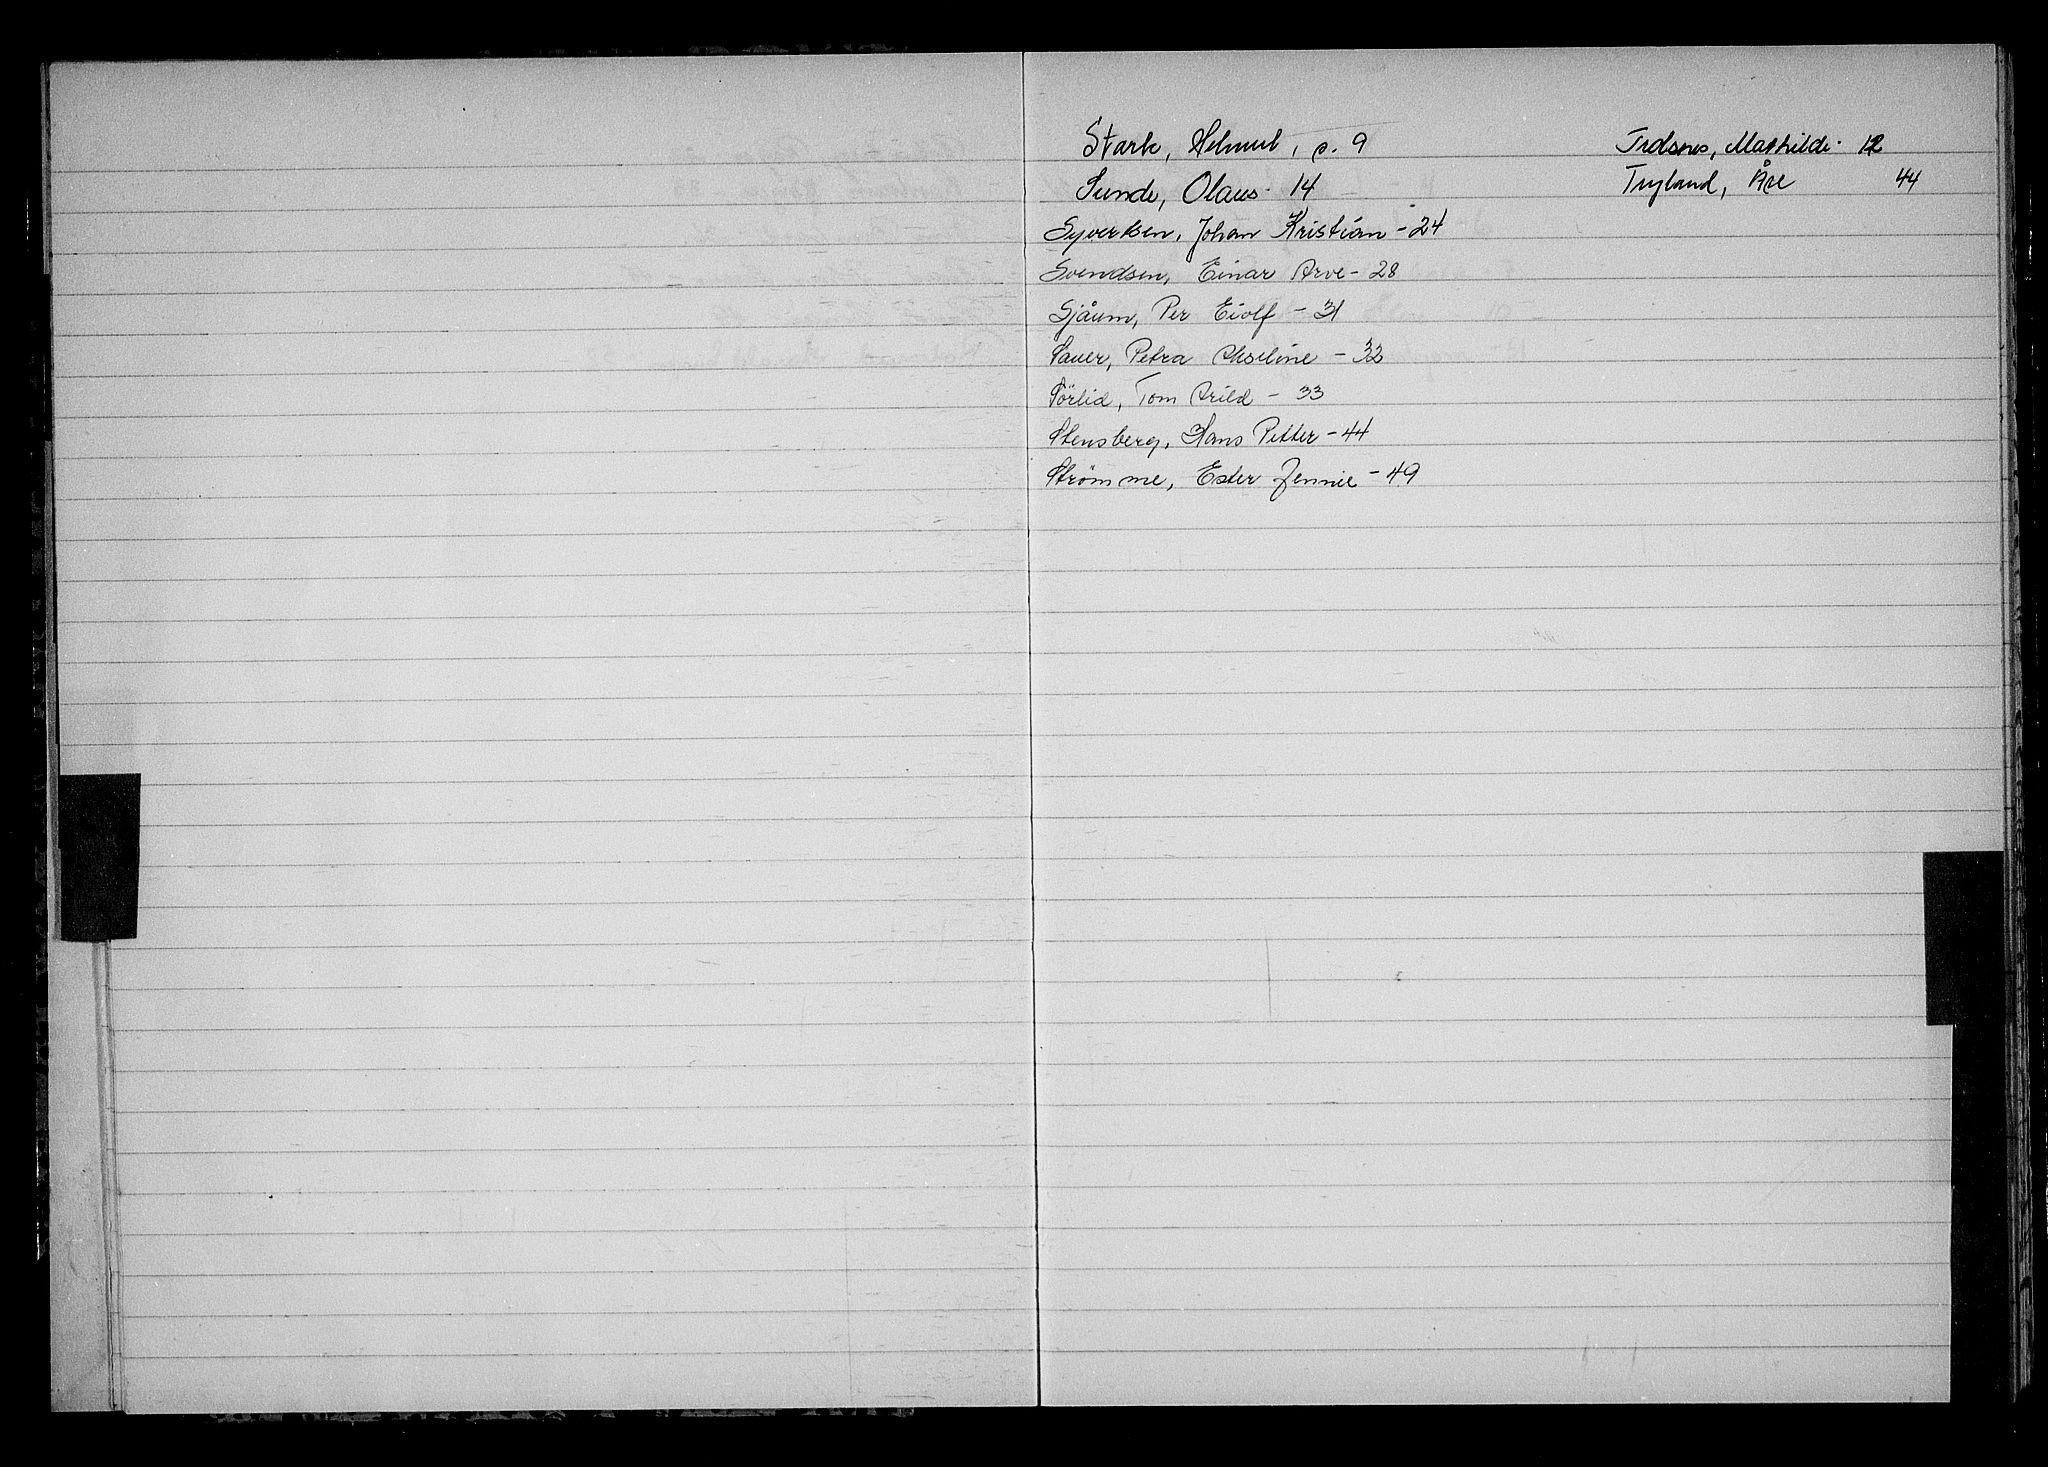 Stark, Helmut, s. 9
Sunde, Olaus - 14
Syvertsen, Johan Kristian - 24
Svendsen, Einar Arve - 28
Sjåum, Per Eiolf - 31
Sauer, Petra Axeline - 32
Sörlid, Tom Arild - 33
Stensberg, Hans Petter - 44
Strömme, Ester Jennie - 49
Mathilde - 12
Tryland, 44